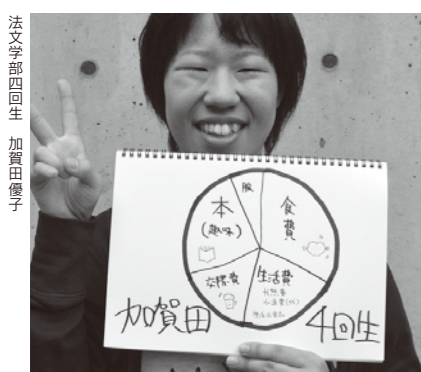 法文学部四回生　加賀田優子
服
食費
本
(趣味)
交際費
生活費
加賀田
4回生